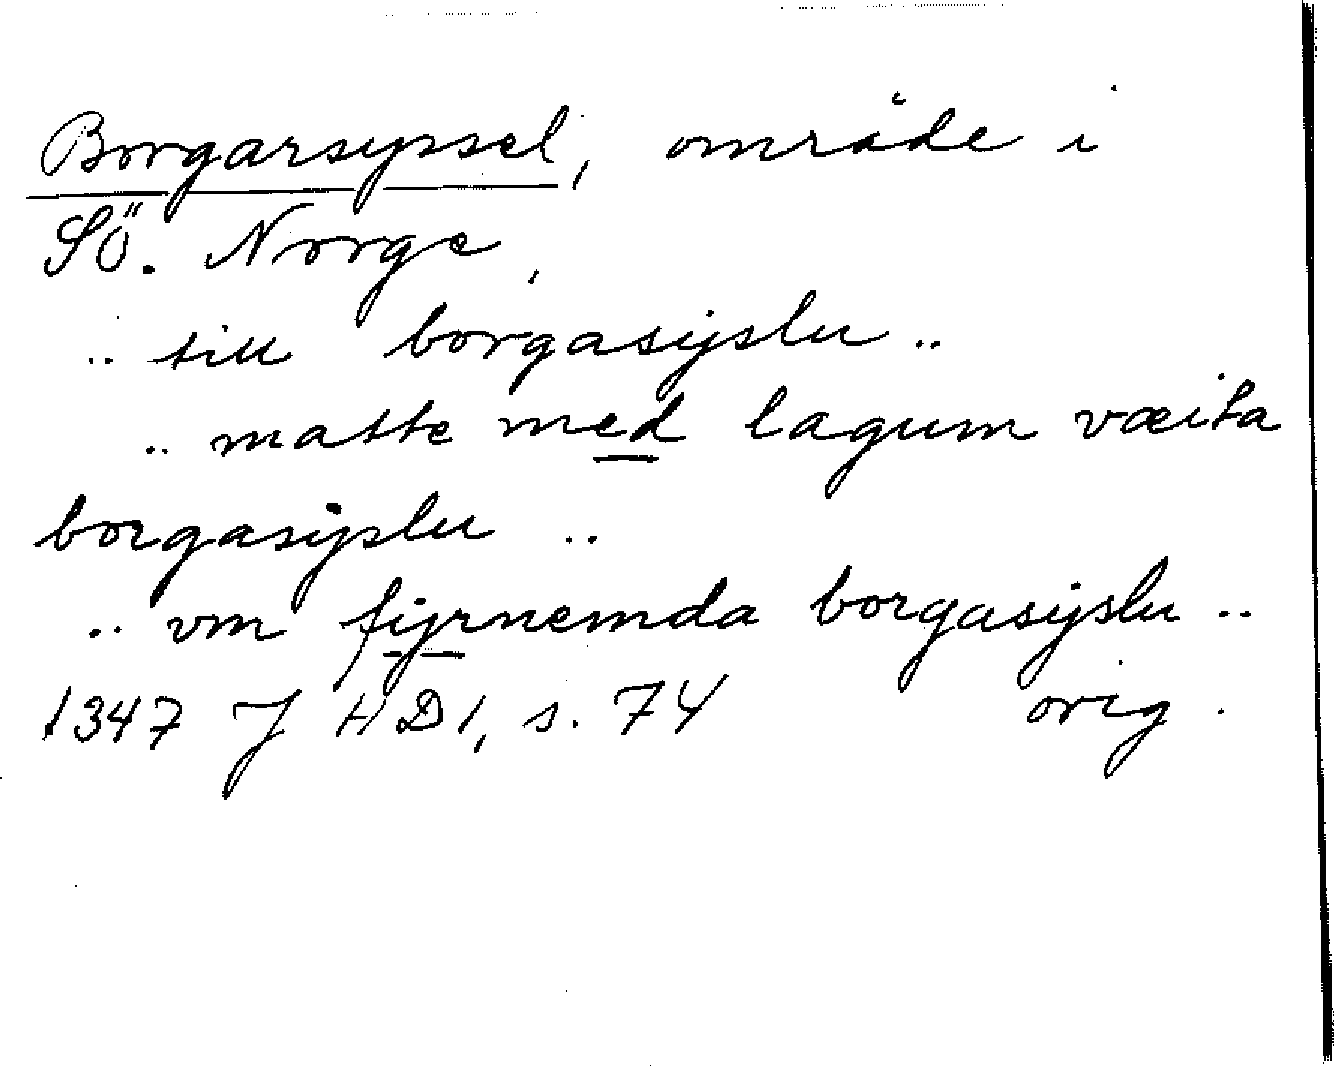 Borgarsyssel, område i
SÖ. Norge,
.. till borgasẏslu ..
.. matte med lagum væita
borgasẏslu ..
.. vm fẏrnemda borgasẏslu ..
1347 J HD1, s. 74 orig.